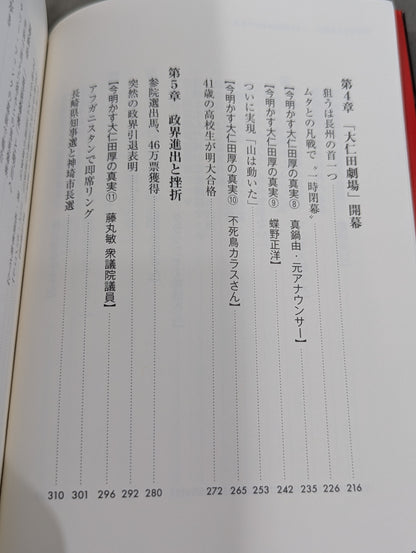 第4章 「大仁田劇場」開幕
狙うは長州の首一つ 216
ムタとの凡戦で〝一時閉幕〟 226
【今明かす大仁田厚の真実⑧ 真鍋由・元アナウンサー】 235
【今明かす大仁田厚の真実⑨ 蝶野正洋】 242
ついに実現、「山は動いた」 253
【今明かす大仁田厚の真実⑩ 不死鳥カラスさん】 265
41歳の高校生が明大合格 272
第5章 政界進出と挫折
参院選出馬、46万票獲得 280
突然の政界引退表明 292
【今明かす大仁田厚の真実⑪ 藤丸敏 衆議院議員】 296
アフガニスタンで即席リング 301
長崎県知事選と神埼市長選 310